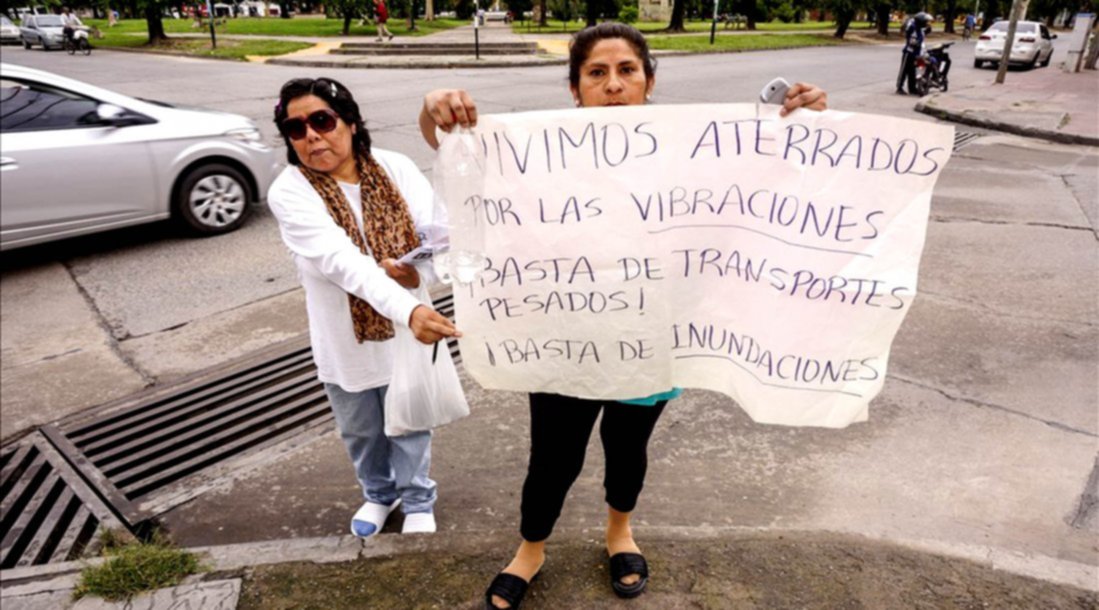 VIVIMOS ATERRADOS
POR LAS VIBRACIONES
¡BASTA DE TRANSPORTES
PESADOS!
¡BASTA DE INUNDACIONES